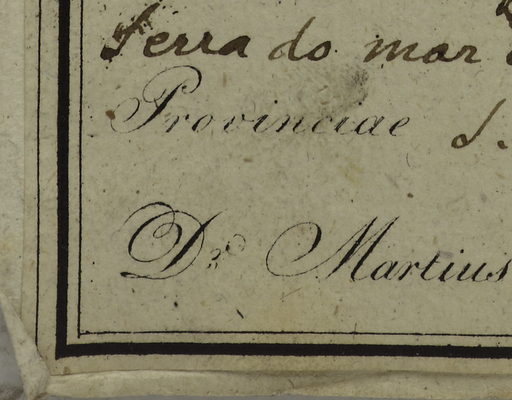 Serra do mar
Provinciae S.
Dr. Martius